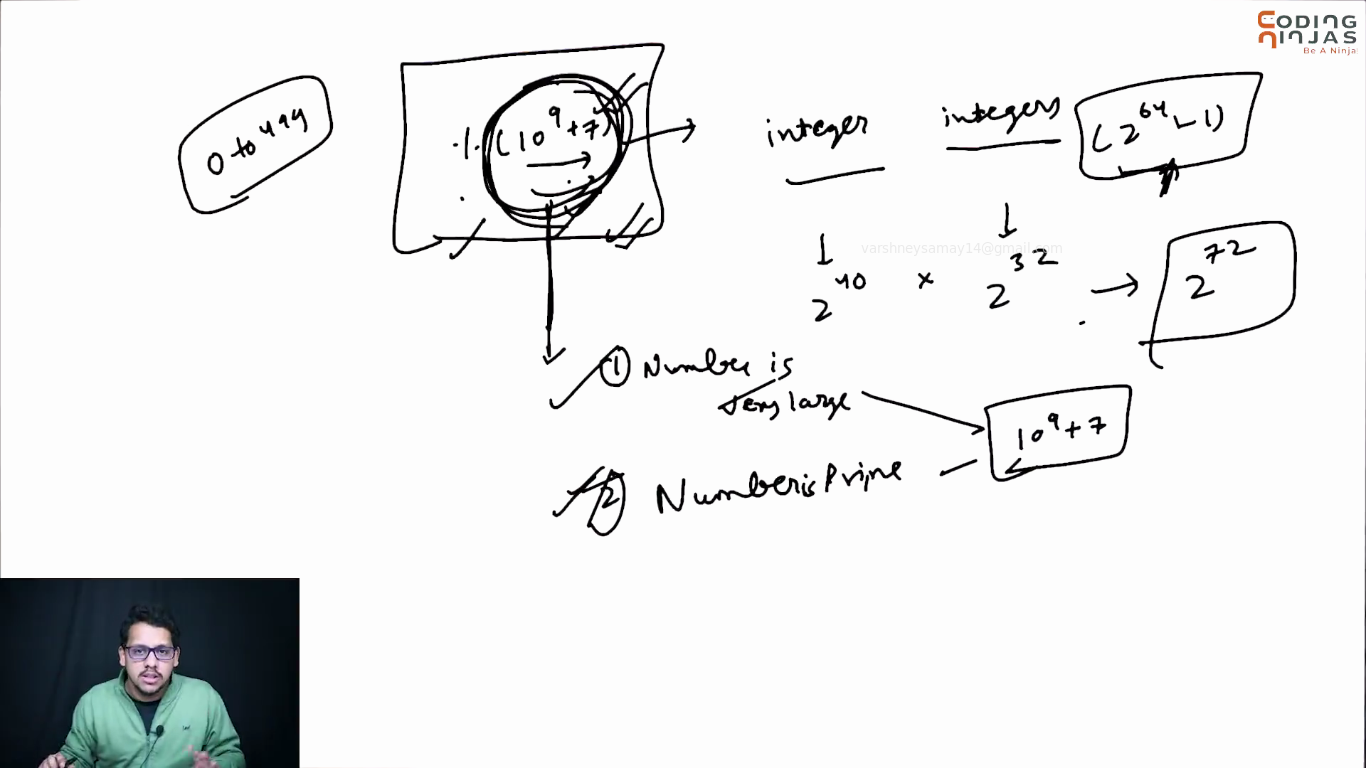 CODING
NINJAS
Be A Ninja
0 to 499
% (10^9+7)
integer
integers
(2^64 - 1)
varshneysamay14@gmail.com
2^40 x 2^32 → 2^72
① Number is
very large
10^9+7
② Number is Prime